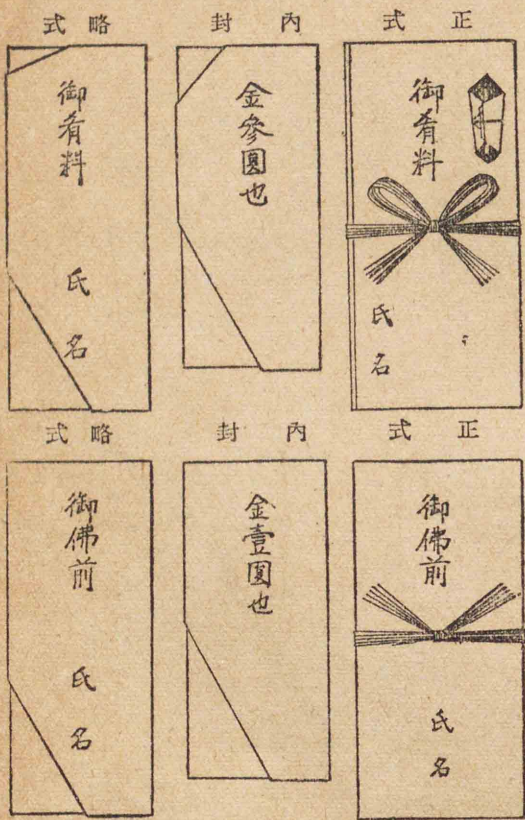 正式
御肴料
氏名
内封
金參圓也
略式
御肴料
氏名
正式
御佛前
氏名
内封
金壹圓也
略式
御佛前
氏名